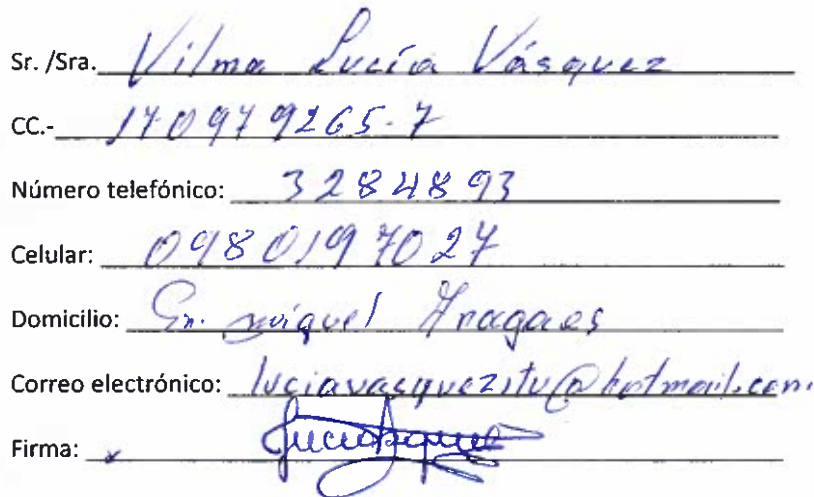 Sr. /Sra. Vilma Lucía Vásquez
CC.- 170979265-7
Número telefónico: 3284893
Celular: 0980197027
Domicilio: Sn. miguel
Correo electrónico: luciavasquezitv@hotmail.com.
Firma: